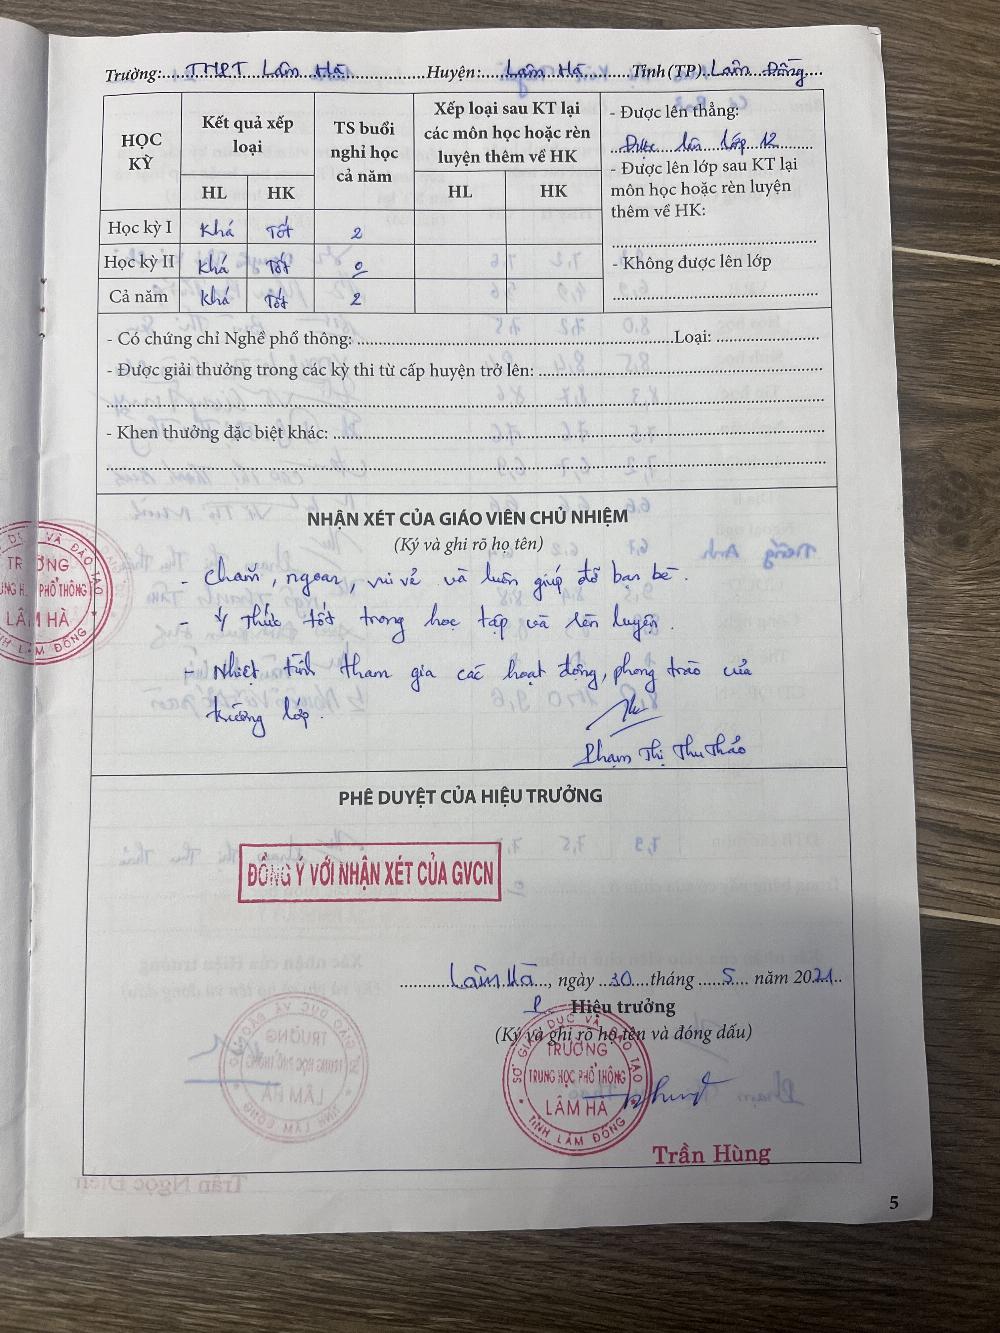 Trường: THPT Lâm Hà Huyện: Lâm Hà Tỉnh (TP) Lâm Đồng
HỌC KỲ
Kết quả xếp loại
HL HK
TS buổi nghỉ học cả năm
Xếp loại sau KT lại các môn học hoặc rèn luyện thêm về HK
HL HK
- Được lên thẳng:
Được lên lớp 12
- Được lên lớp sau KT lại môn học hoặc rèn luyện thêm về HK:
- Không được lên lớp
Học kỳ I Khá Tốt 2
Học kỳ II Khá Tốt 0
Cả năm Khá Tốt 2
- Có chứng chỉ Nghề phổ thông: Loại:
- Được giải thưởng trong các kỳ thi từ cấp huyện trở lên:
- Khen thưởng đặc biệt khác:
NHẬN XÉT CỦA GIÁO VIÊN CHỦ NHIỆM
(Ký và ghi rõ họ tên)
- Chăm, ngoan, vui vẻ và luôn giúp đỡ bạn bè.
- Ý thức tốt trong học tập và rèn luyện.
- Nhiệt tình tham gia các hoạt động, phong trào của
trường lớp.
Phạm Thị Thu Thảo
PHÊ DUYỆT CỦA HIỆU TRƯỞNG
ĐỒNG Ý VỚI NHẬN XÉT CỦA GVCN
Lâm Hà, ngày 30 tháng 5 năm 2021
P. Hiệu trưởng
(Ký và ghi rõ họ tên và đóng dấu)
SỞ GIÁO DỤC VÀ ĐÀO TẠO
TRƯỜNG
TRUNG HỌC PHỔ THÔNG
LÂM HÀ
TỈNH LÂM ĐỒNG
Trần Hùng
5